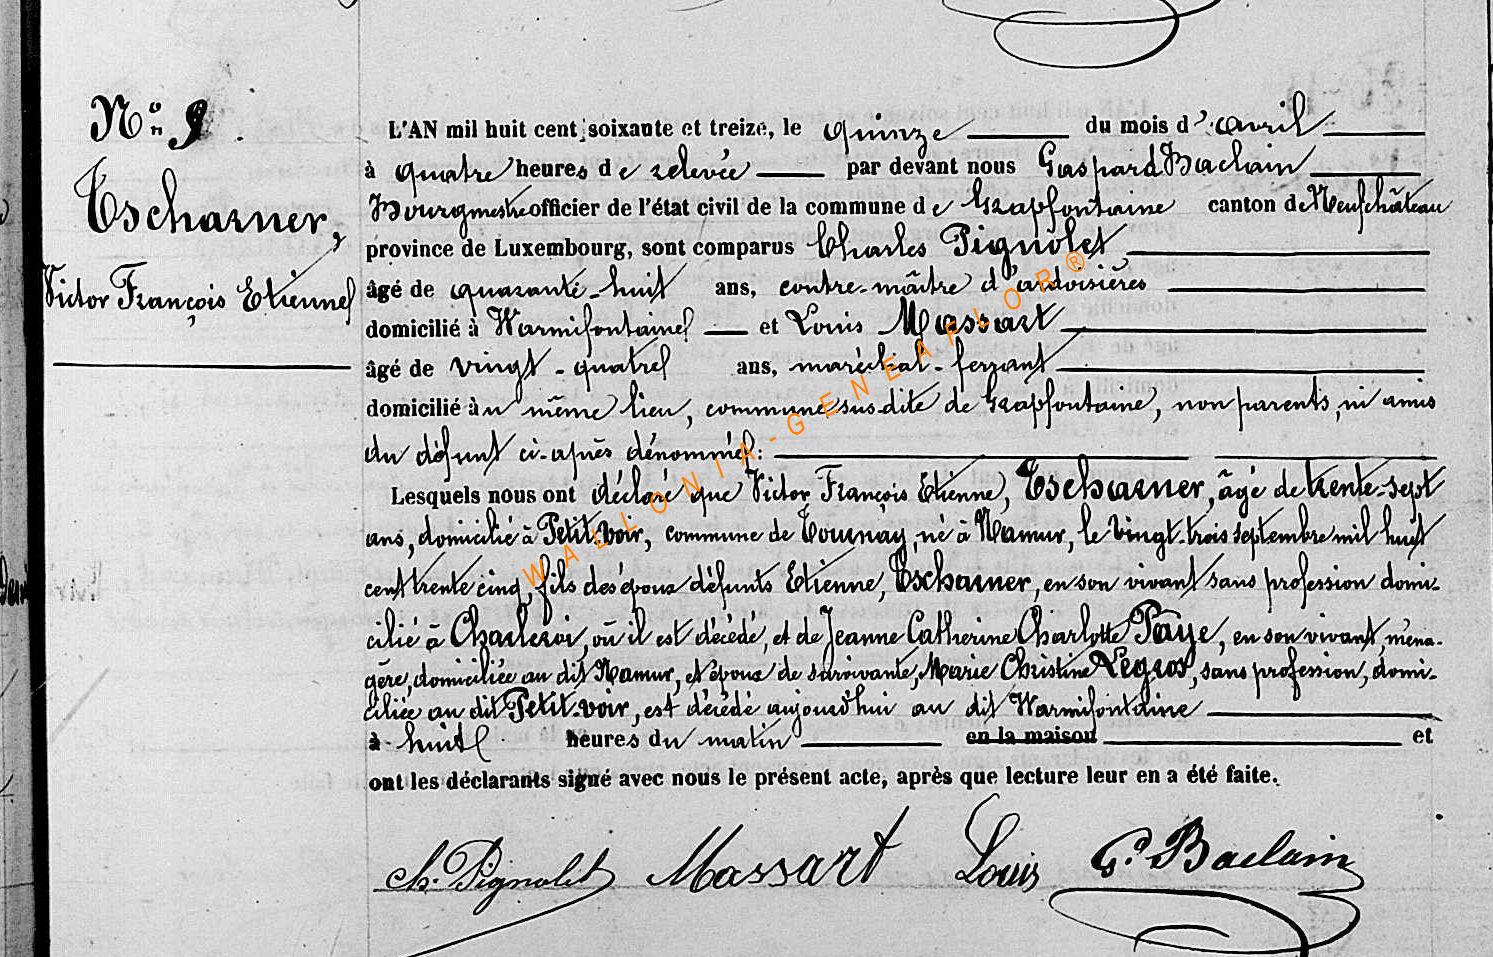 N.º 9.
Tscharner,
Victor François Etienne
L'AN mil huit cent soixante et treize, le quinze du mois d'avril
à quatre heures de relevée par devant nous Gaspard Baclain
Bourgmestre officier de l'état civil de la commune de Grapfontaine canton de Neufchâteau
province de Luxembourg, sont comparus Charles Pignolet
âgé de quarante-huit ans, contre-maître d'ardoisières
domicilié à Warmifontaine et Louis Massart
âgé de vingt-quatre ans, maréchal-ferrant
domicilié au même lieu, commune susdite de Grapfontaine, non parents, ni amis
du défunt ci-après dénommé:
Lesquels nous ont déclaré que Victor François Etienne, Tscharner, âgé de trente-sept
ans, domicilié à Petit-voir, commune de Tournay, né à Namur, le vingt-trois septembre mil huit
cent trente cinq, fils des époux défunts Etienne, Tscharner, en son vivant sans profession domi-
cilié à Charleroi, où il est décédé, et de Jeanne Catherine Charlotte Paye, en son vivant, ména-
gère, domiciliée au dit Namur, et époux de survivante, Marie Christine Legros, sans profession, domi-
ciliée au dit Petit-voir, est décédé aujourd'hui au dit Warmifontaine
à huit heures du matin en la maison et
ont les déclarants signé avec nous le présent acte, après que lecture leur en a été faite.
Ch. Pignolet Massart Louis G. Baclain
WALLONIA-GENEAFLOR®